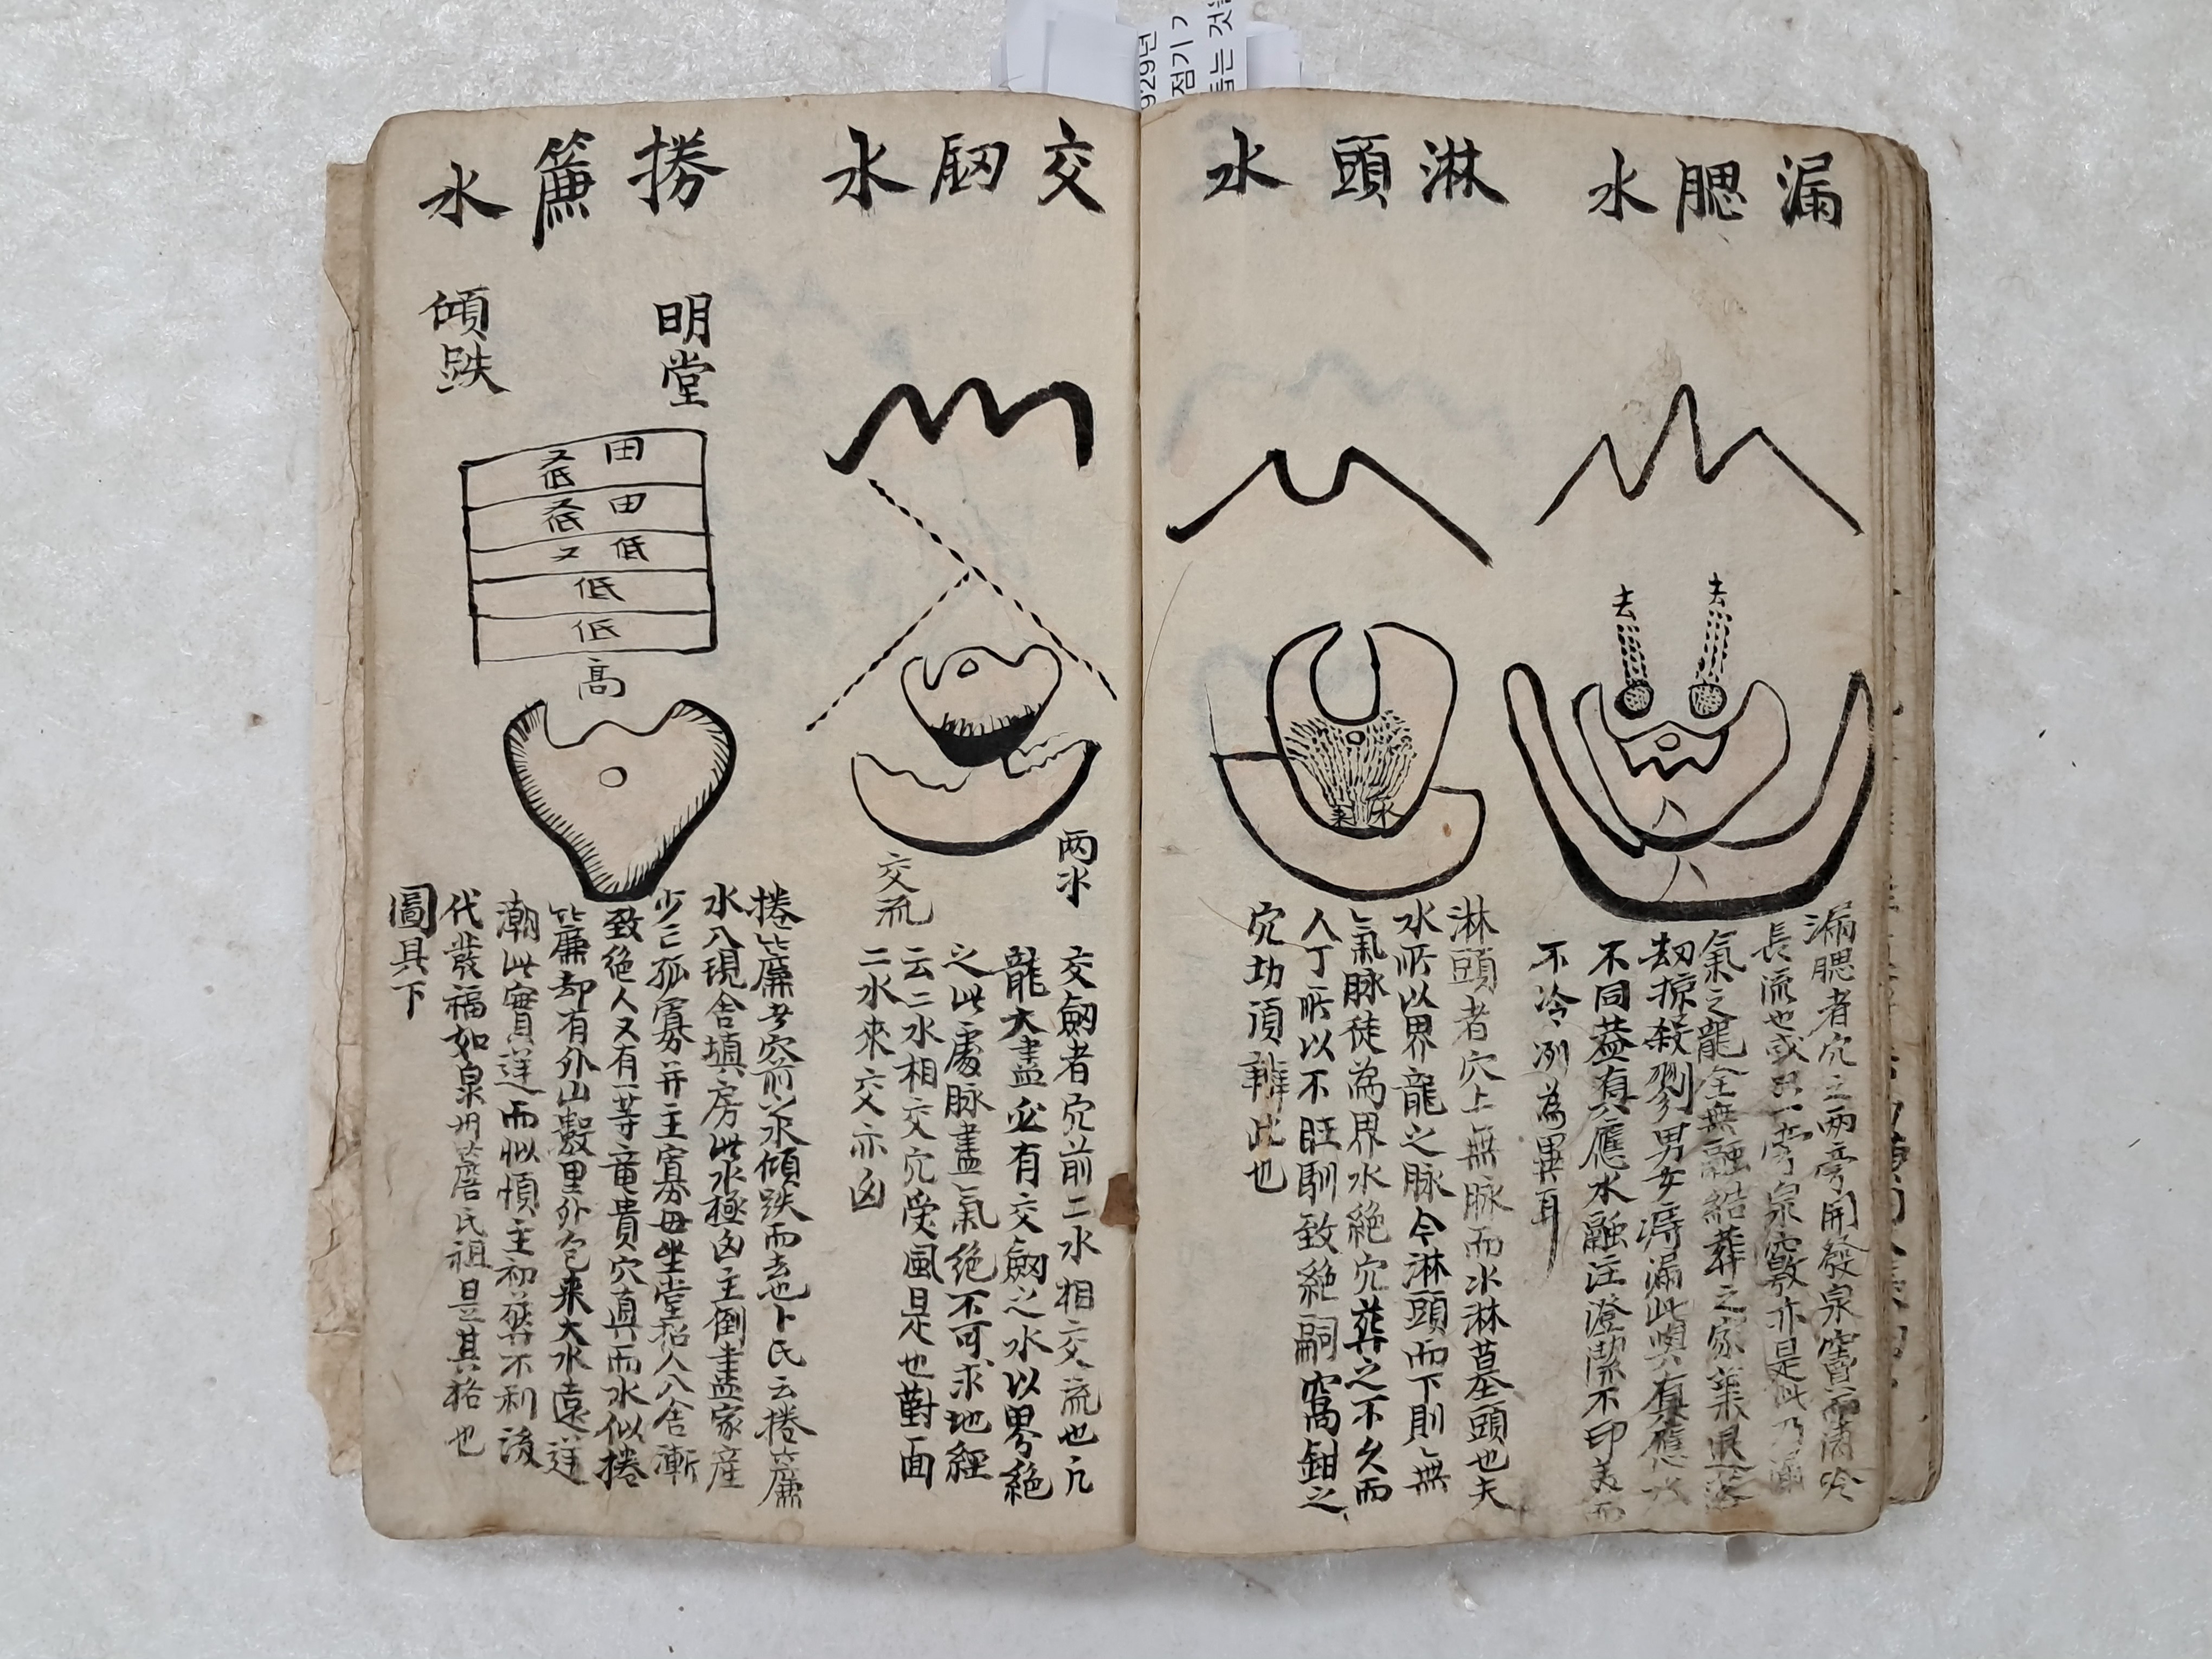 漏腮水
去
去
漏腮者穴之兩旁開發泉竇而清冷
長流也或只一旁泉竅亦是此乃漏
氣之龍全無融結葬之家業退落
劫掠殺剹男女痔漏此與真應水
不同蓋真應水融注澄潔不印美而
不冷冽為異耳
淋頭水
水
淋頭者穴上無脉而水淋墓頭也夫
水所以界龍之脉今淋頭而下則無
氣脉徒為界水絶穴葬之不久而
人丁所以不旺馴致絶嗣窩鉗之
穴功湏辨此也
交劒水
兩水
交流
交劒者穴前二水相交流也凢
龍大盡必有交劒之水以界絶
之此處脉盡氣絶不可求地經
云二水相交穴受風是也對面
二水來交亦凶
捲簾水
明堂
傾跌
田 又低
田 又低
低 又
低
低
高
捲簾者穴前水傾跌而去也卜氏云捲簾
水入現舍填房此水極凶主倒盡家産
少亡孤寡并主寡母坐堂招人入舍漸
致絶人又有一等竜貴穴真而水似捲
簾却有外山數里外包来大水遠逆
潮此實逆而似順主初葬不利後
代發福如泉州詹氏祖是其格也
圖具下
929년
점기